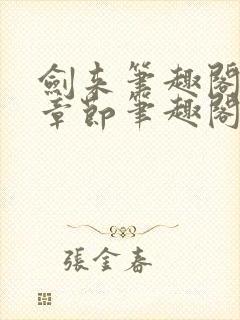 劍来筆趣閣
章節筆趣閣
張金春